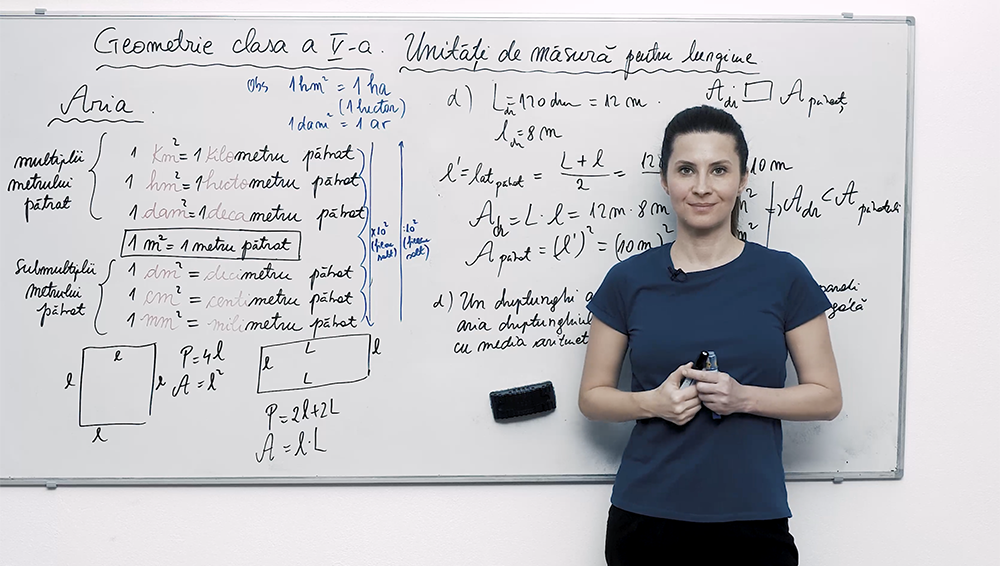 Geometrie clasa a V-a. Unități de măsură pentru lungime
Aria.
Obs 1 hm² = 1 ha
(1 hector)
1 dam² = 1 ar
multiplii
metrului
pătrat
1 km² = 1 kilometru pătrat
1 hm² = 1 hectometru pătrat
1 dam² = 1 decametru pătrat
1 m² = 1 metru pătrat
Submultiplii
metrului
pătrat
1 dm² = decimetru pătrat
1 cm² = centimetru pătrat
1 mm² = milimetru pătrat
×10²
:10²
l
l
l
l
P = 4l
A = l²
L
l
l
L
P = 2l + 2L
A = l · L
d) L dr = 120 dm = 12 m.
l dr = 8 m
A dr
A pătrat
l' = lat pătrat = L + l / 2 = 10 m
A dr = L · l = 12 m · 8 m
A pătrat = (l')² = (10 m)
A dr < A
d) Un dreptunghi
aria dreptunghiul
cu media aritmet